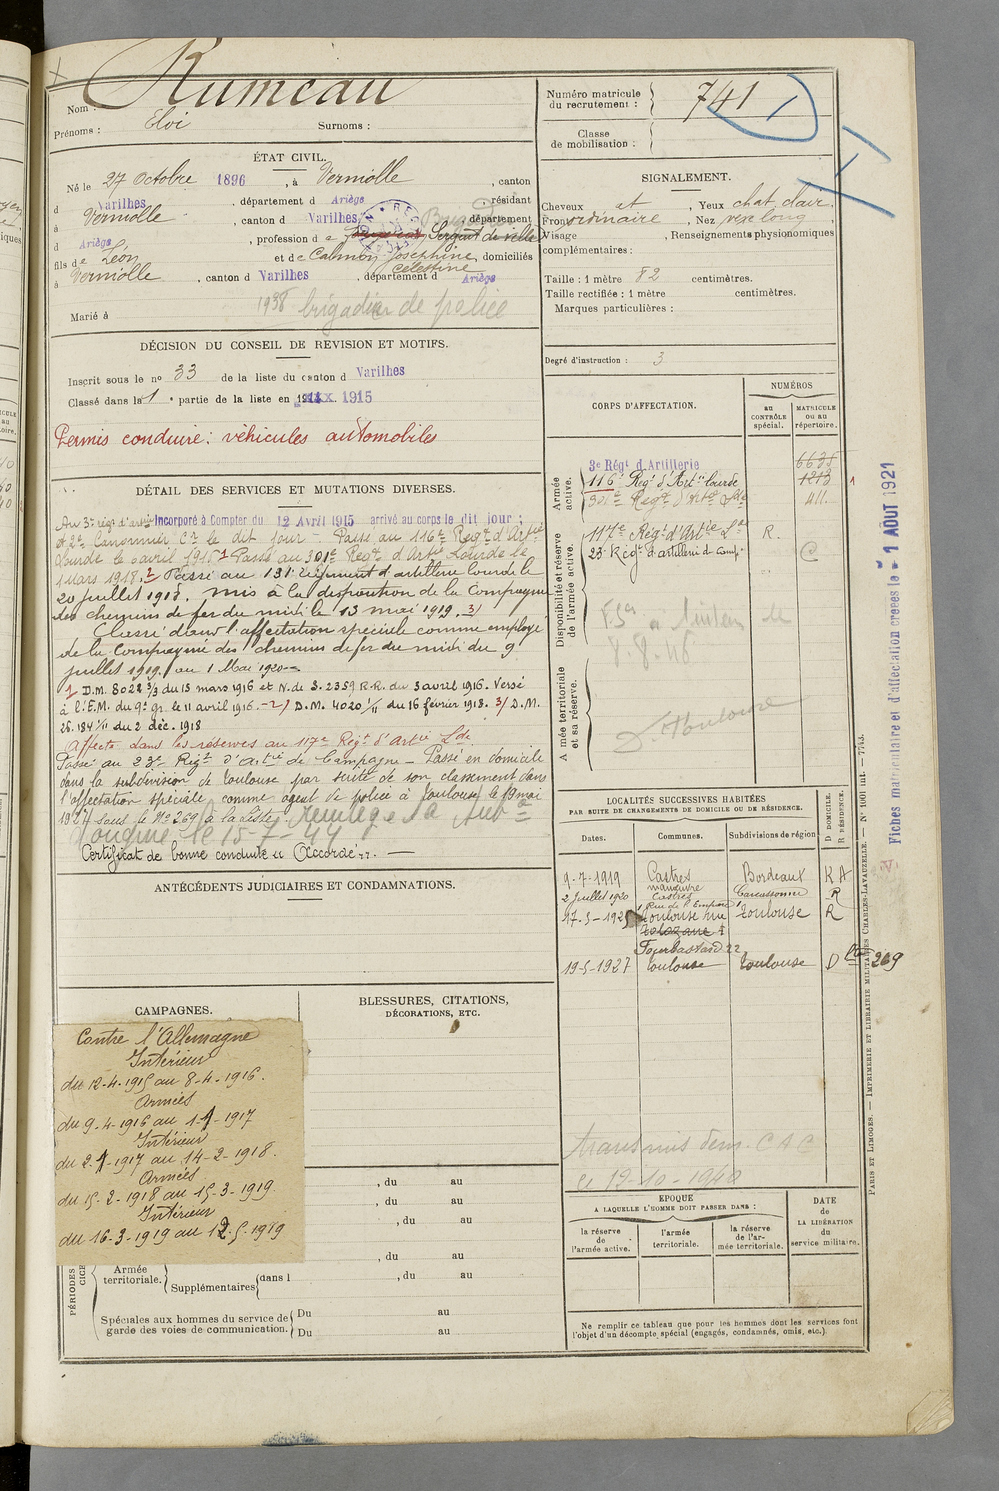 Rumeau
Nom :
Prénoms : Eloi Surnoms :
ÉTAT CIVIL.
Né le 27 Octobre 1896, à Verniolle, canton
d Varilhes, département d Ariège, résidant
à Verniolle, canton d Varilhes, département
d Ariège, profession d e Sergent de ville
fils d e Léon et d e Calmon Joséphine, domiciliés
Célestine
à Verniolle, canton d Varilhes, département d Ariège
1938 brigadier de police
Marié à
DÉCISION DU CONSEIL DE REVISION ET MOTIFS.
Inscrit sous le no 33 de la liste du canton d Varilhes
Classé dans la 1 e partie de la liste en 1915
Permis conduire : véhicules automobiles
DÉTAIL DES SERVICES ET MUTATIONS DIVERSES.
Au 3e régt d'artie Incorporé à Compter du 12 Avril 1915 arrivé au corps le dit jour ;
et 2e Canonnier Ct le dit jour - Passé au 116e Régt d'Artie
Lourde le 6 avril 1916 1 Passé au 301e Régt d'Artie Lourde le
1 Mars 1918. 2 Passé au 131e régiment d'artillerie lourde le
20 juillet 1918. mis à la disposition de la Compagnie
des chemins de fer du midi le 13 mai 1919. 3/
Classé dans l'affectation spéciale comme employé
de la Compagnie des chemins de fer du midi du 9
juillet 1919 au 1 Mai 1920
1 D.M. 8028 3/3 du 15 mars 1916 et N. de S. 2359 R.R. du 3 avril 1916. Versé
à l'E.M. du 9e gr. le 11 avril 1916. - 2/ D.M. 4020 1/11 du 16 février 1918. 3/ D.M.
26.184 1/11 du 2 déc. 1918
Affecté dans les réserves au 117e Régt d'Artie Lde
Passé au 23e Régt d'Artie de Campagne - Passé en domicile
dans la subdivision de Toulouse par suite de son classement dans
l'affectation spéciale comme agent de police à Toulouse le 19 mai
1927 sous le No 269 à la liste.
le 15-7-44
Certificat de bonne conduite « Accordé ».
ANTÉCÉDENTS JUDICIAIRES ET CONDAMNATIONS.
CAMPAGNES.
Contre l'Allemagne
Intérieur
du 12-4-1915 au 8-4-1916.
Armées
du 9-4-1916 au 1-1-1917
Intérieur
du 2-1-1917 au 14-2-1918.
Armées
du 15-2-1918 au 15-3-1919.
Intérieur
du 16-3-1919 au 12-5-1919
BLESSURES, CITATIONS,
DÉCORATIONS, ETC.
, du au
, du au
, du au
, du au
PÉRIODES
Armée
territoriale. Supplémentaires dans l , du au
Spéciales aux hommes du service de
garde des voies de communication. Du au
Du au
Numéro matricule
du recrutement : 741
Classe
de mobilisation :
SIGNALEMENT.
Cheveux at, Yeux chat. clair
Front ordinaire, Nez vexe long
Visage , Renseignements physionomiques
complémentaires :
Taille : 1 mètre 82 centimètres.
Taille rectifiée : 1 mètre centimètres.
Marques particulières :
Degré d'instruction : 3
CORPS D'AFFECTATION.
NUMÉROS
AU
CONTRÔLE
spécial.
MATRICULE
OU AU
répertoire.
Armée
active.
3e Régt d'Artillerie 6635
116e Régt d'Artie lourde 1213
301e Régt d'Artie Lde 411
Disponibilité et réserve
de l'armée active.
117e Régt d'Artie Lde R.
23e Régt d'artillerie d. campe C
8-8-46
Armée territoriale
et sa réserve.
D. Toulouse
LOCALITÉS SUCCESSIVES HABITÉES
PAR SUITE DE CHANGEMENTS DE DOMICILE OU DE RÉSIDENCE.
Dates. Communes. Subdivisions de région
D DOMICILE.
R RÉSIDENCE.
9-7-1919 Castres Bordeaux R A
manœuvre
2 Juillet 1920 Castres Carcassonne R
17-5-1925 Toulouse rue Toulouse R
Tolozane 1
Fourbastard 22
19-5-1927 Toulouse Toulouse D 269
transmis dem. C S C
le 19-10-1940
EPOQUE
A LAQUELLE L'HOMME DOIT PASSER DANS :
la réserve
de
l'armée active.
l'armée
territoriale.
la réserve
de l'ar-
mée territoriale.
DATE
de
LA LIBÉRATION
du
service militaire.
Ne remplir ce tableau que pour les hommes dont les services font
l'objet d'un décompte spécial (engagés, condamnés, omis, etc.)
PARIS ET LIMOGES. — IMPRIMERIE ET LIBRAIRIE MILITAIRES CHARLES-LAVAUZELLE. — No 1001 int. — 7743.
Fiches matriculaire et d'affectation créées le - 1 AOUT 1921